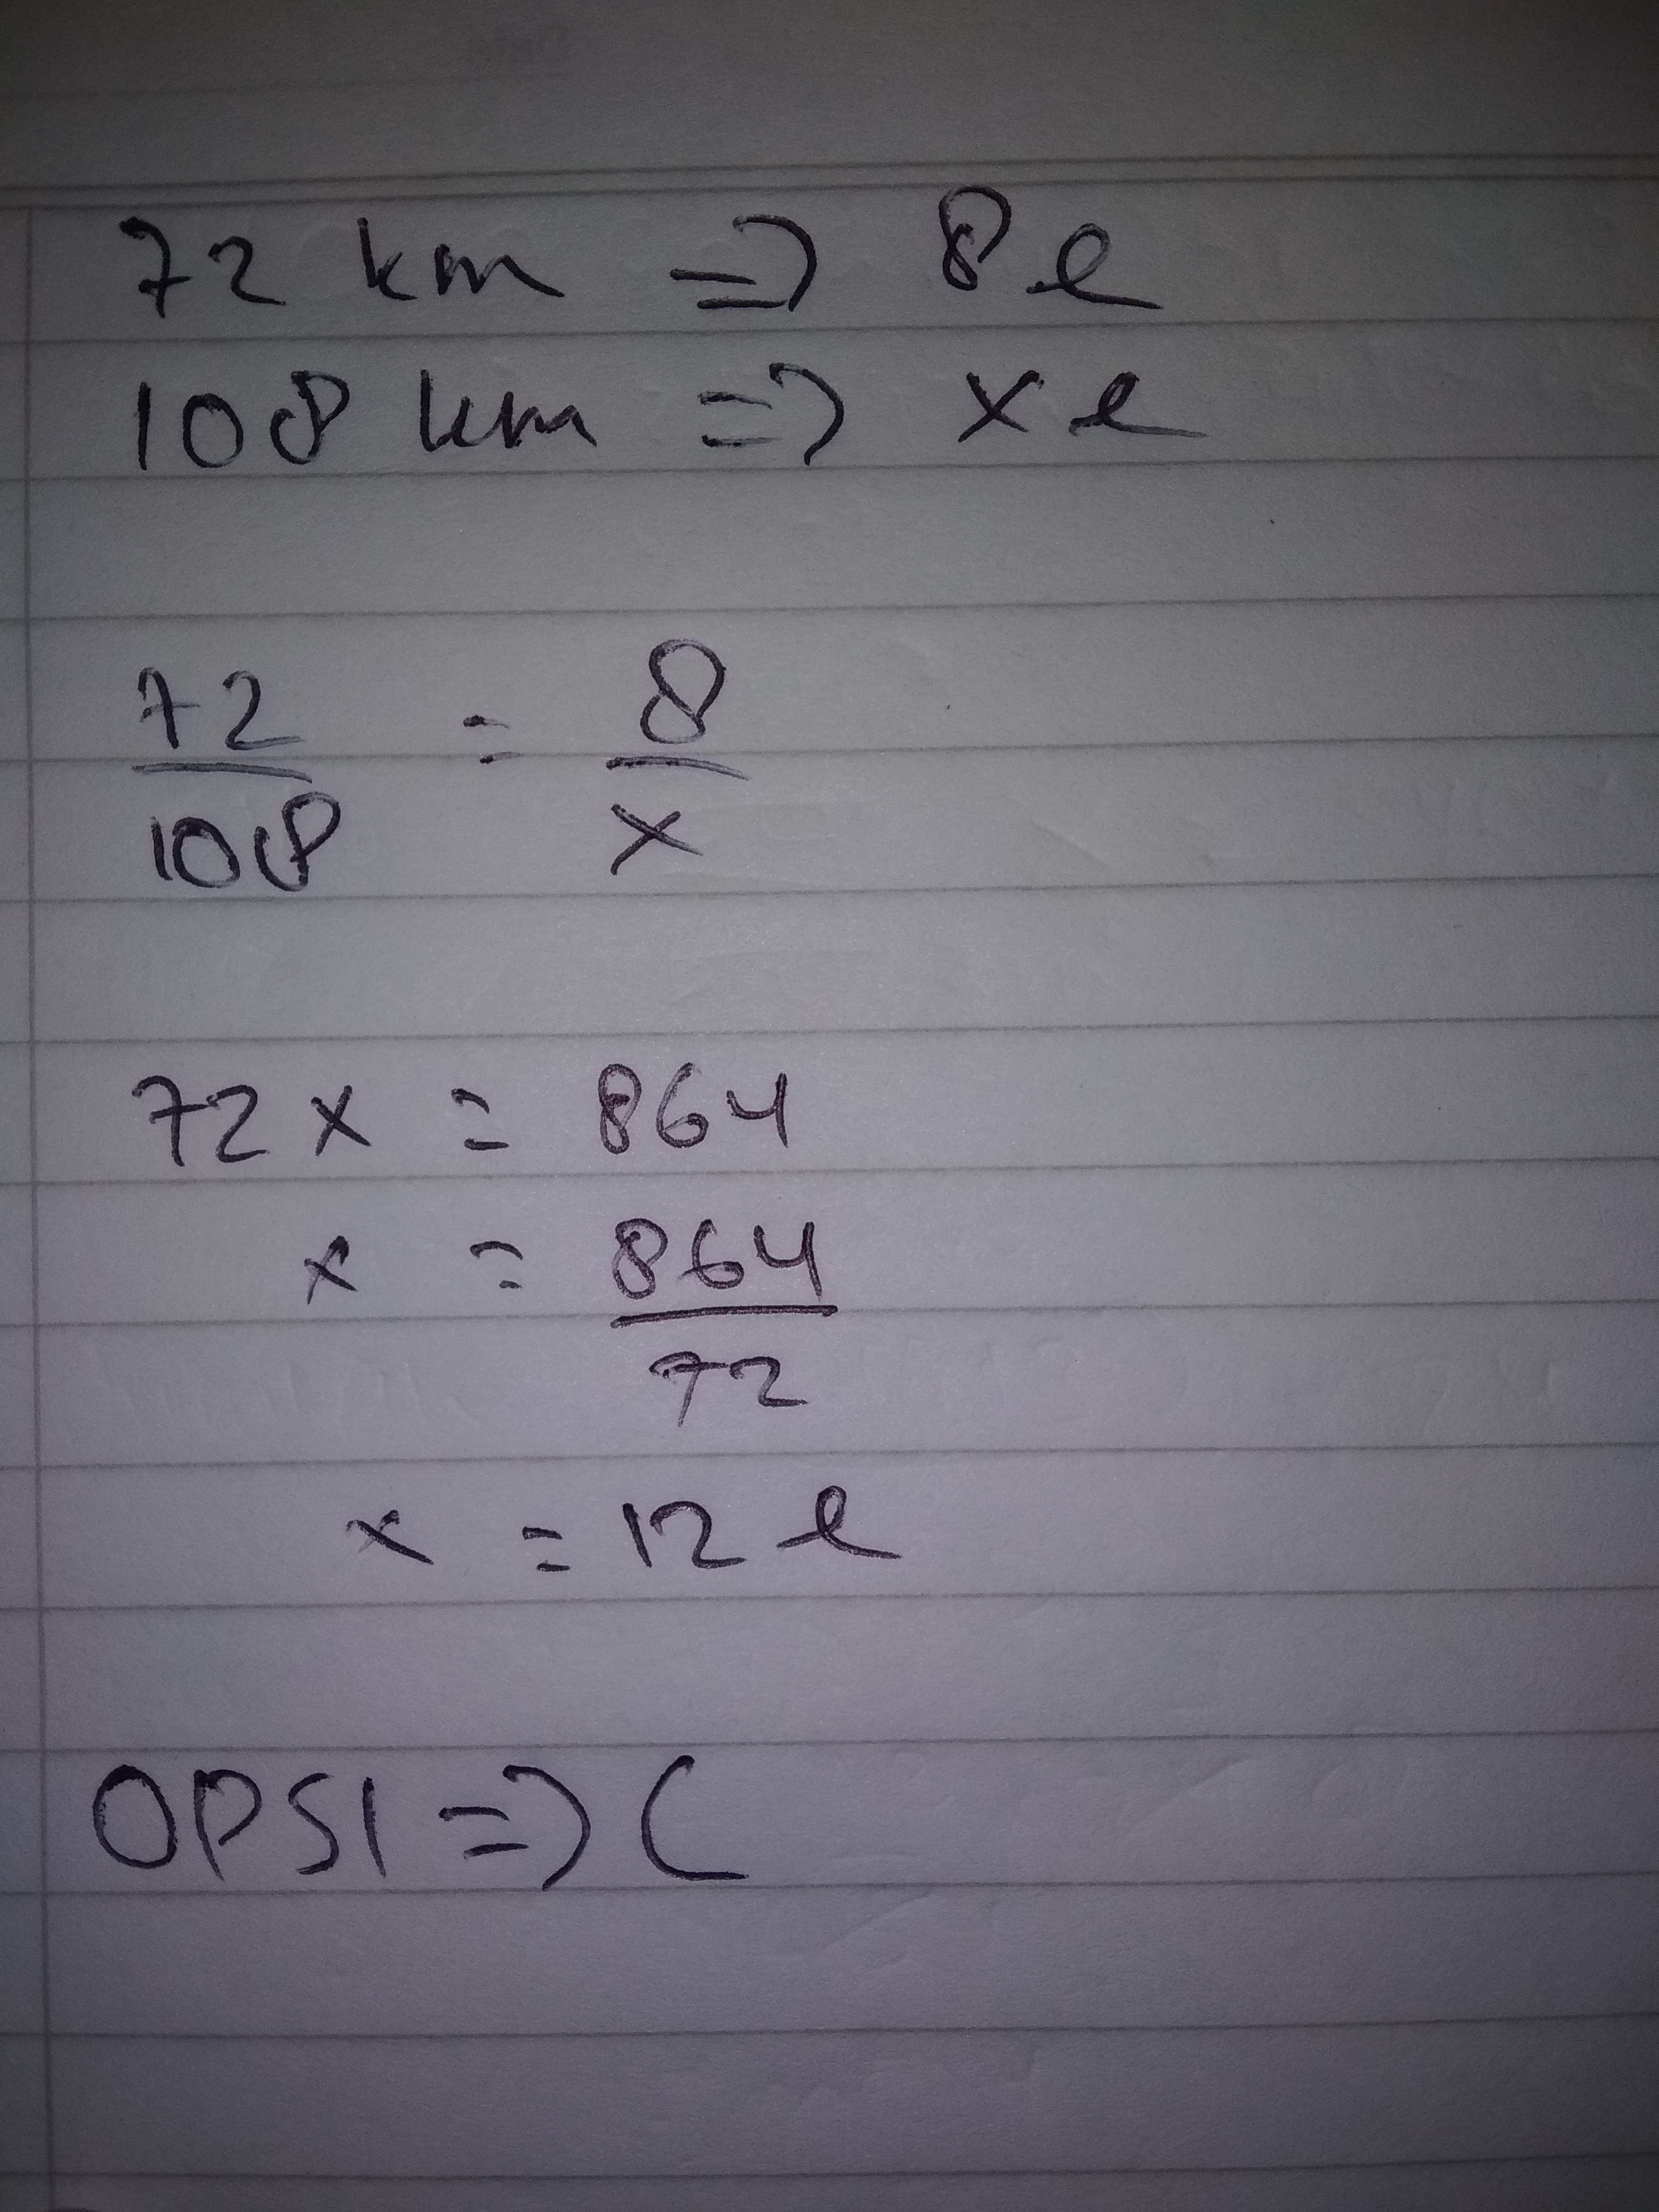 72 km => 8 l
108 km => x l
72/108 = 8/x
72 x = 864
x = 864/72
x = 12 l
OPSI => C